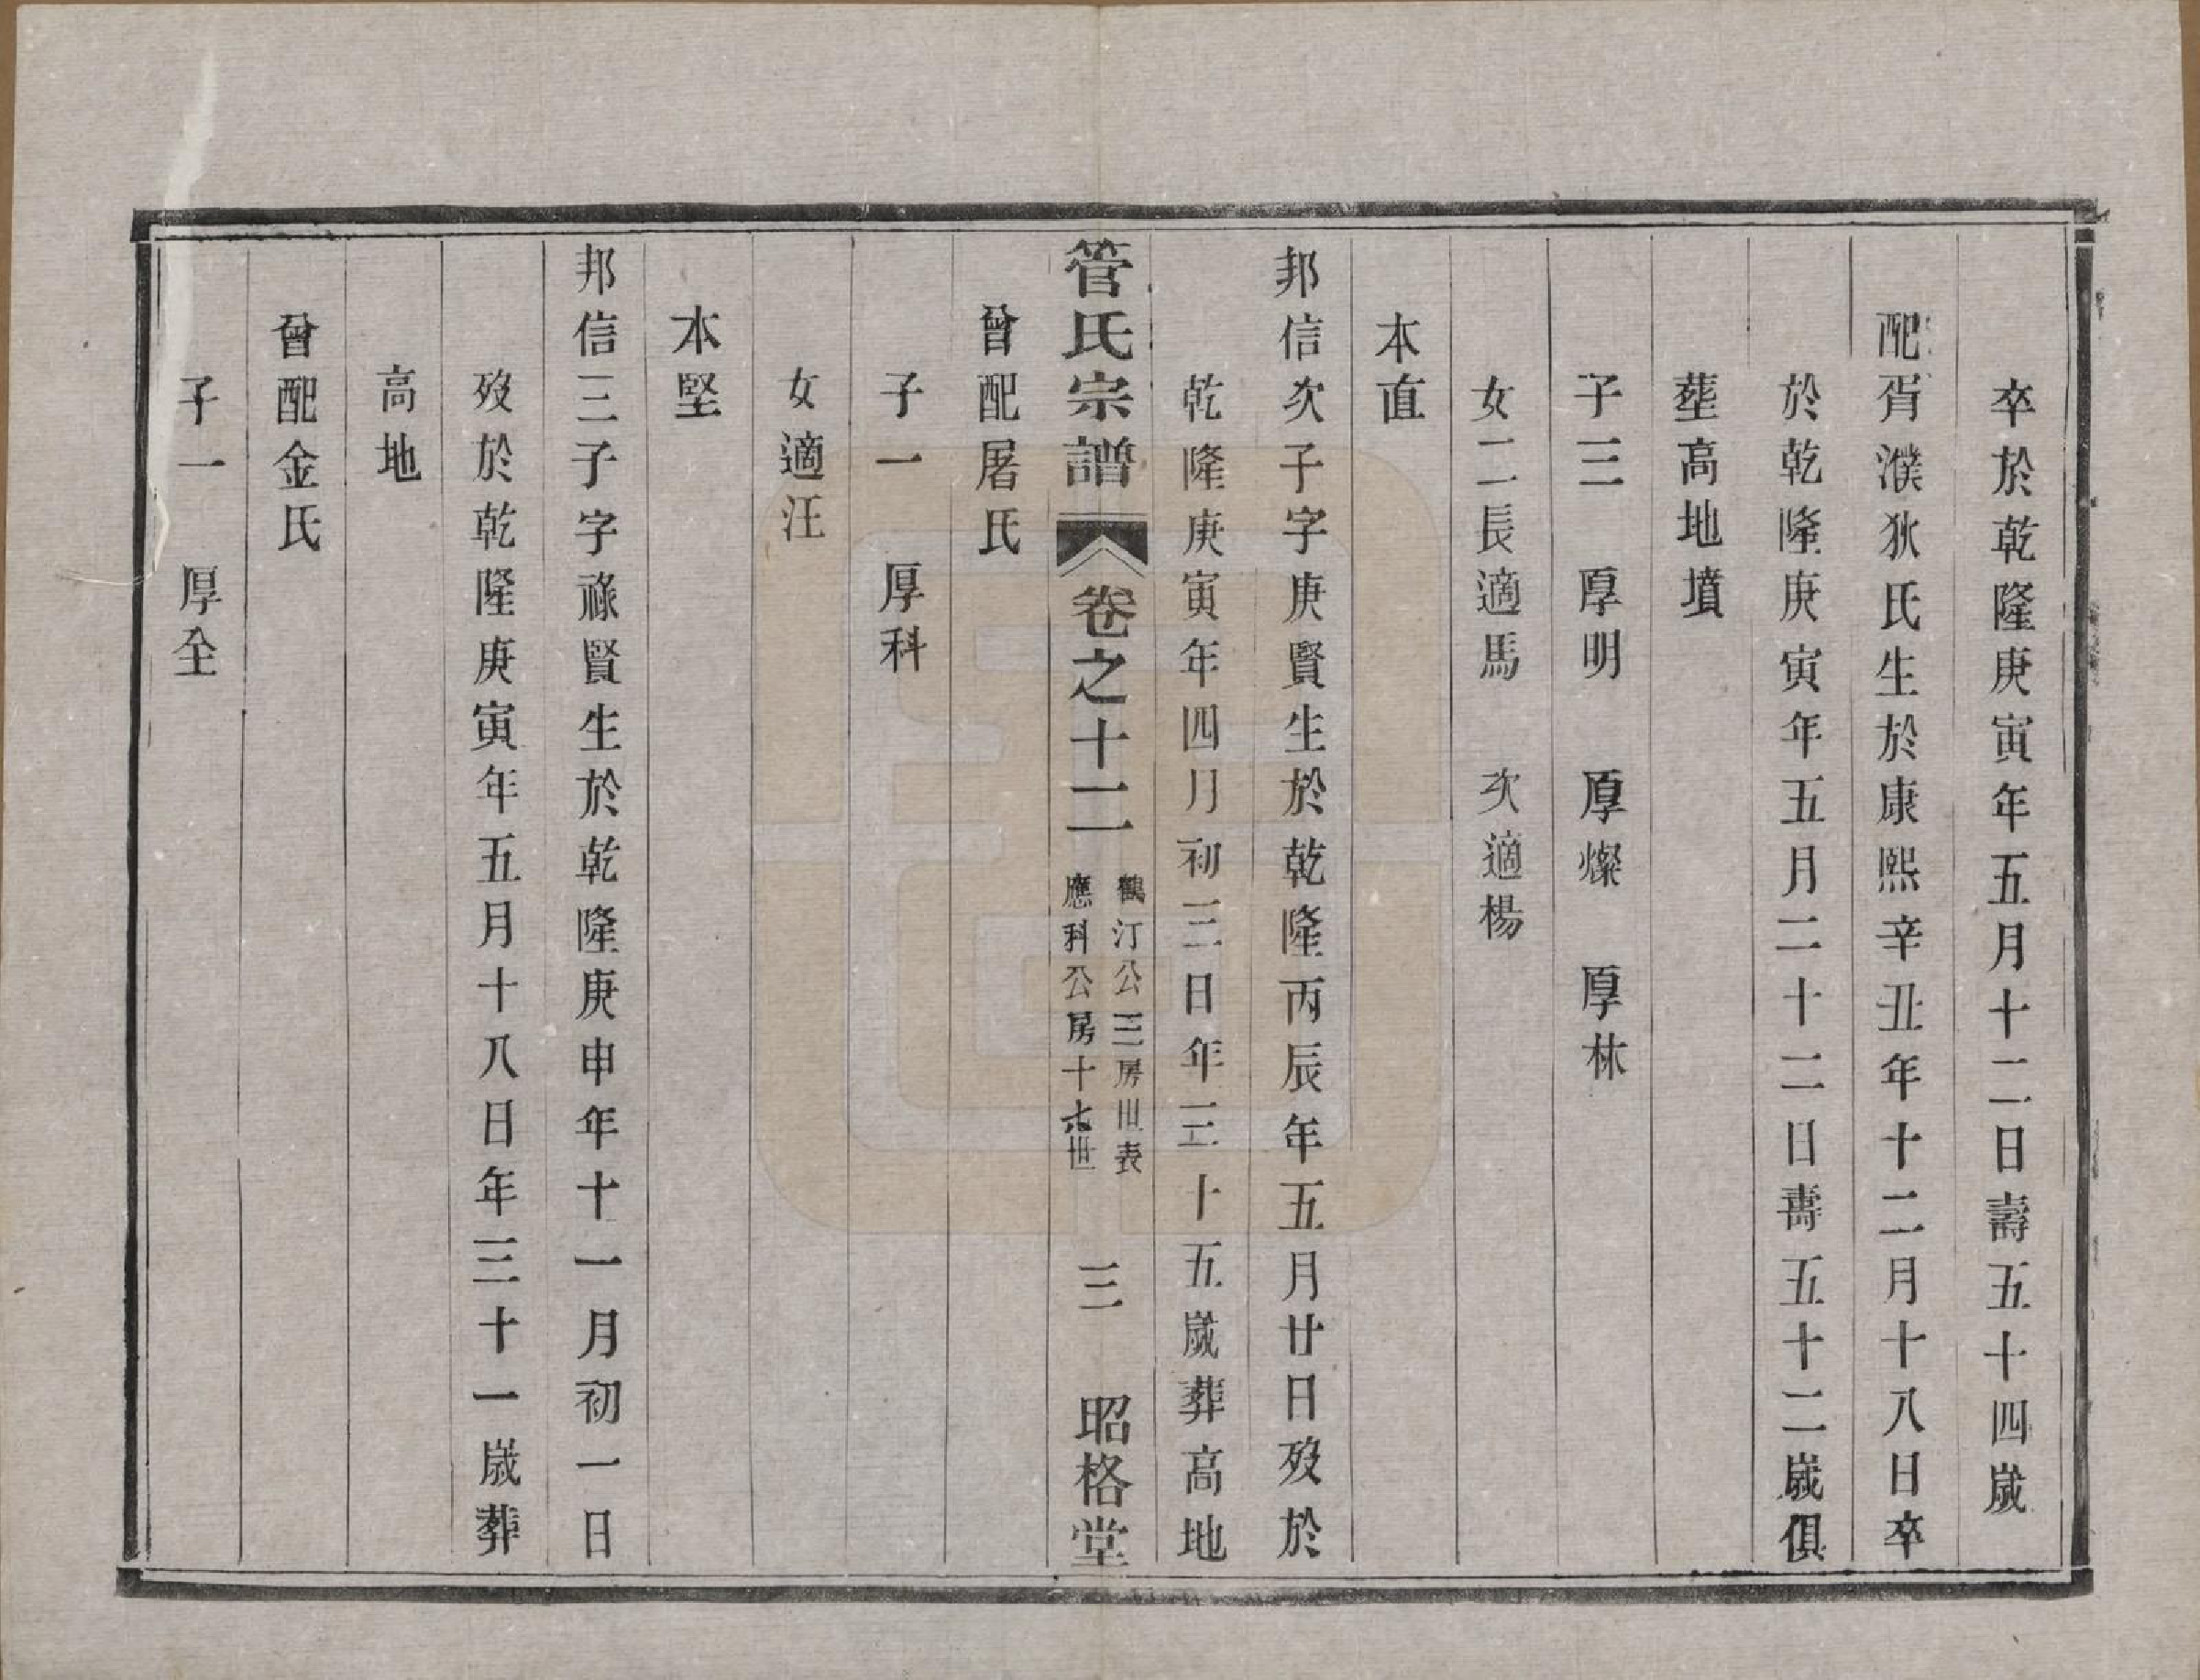 卒於乾隆庚寅年五月十二日壽五十四歲
配胥濮狄氏生於康熙辛丑年十二月十八日卒
於乾隆庚寅年五月二十二日壽五十二歲俱
葬高地墳
子三　厚明　厚燦　厚林
女二長適馬　次適楊
本直
邦信次子字庚賢生於乾隆丙辰年五月廿日歿於
乾隆庚寅年四月初三日年三十五歲葬高地
管氏宗譜　卷之十二　鶴汀公三房世表　應科公房十七世　三　昭格堂
曾配屠氏
子一　厚科
女適汪
本堅
邦信三子字祿賢生於乾隆庚申年十一月初一日
歿於乾隆庚寅年五月十八日年三十一歲葬
高地
曾配金氏
子一　厚全